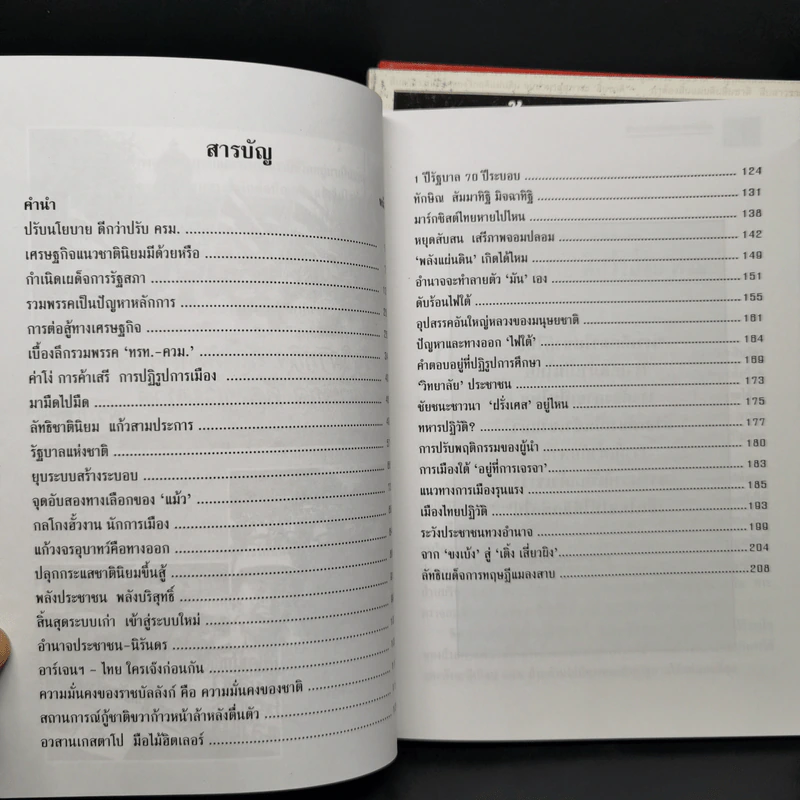 สารบัญ
คำนำ
ปรับนโยบาย ดีกว่าปรับ ครม.
เศรษฐกิจแนวชาตินิยมมีด้วยหรือ
กำเนิดเผด็จการรัฐสภา
รวมพรรคเป็นปัญหาหลักการ
การต่อสู้ทางเศรษฐกิจ
เบื้องลึกรวมพรรค ‘ทรท.-ควม.’
ค่าโง่ การค้าเสรี การปฏิรูปการเมือง
มามืดไปมืด
ลัทธิชาตินิยม แก้วสามประการ
รัฐบาลแห่งชาติ
ยุบระบบสร้างระบอบ
จุดอับสองทางเลือกของ ‘แม้ว’
กลโกงฮั้วงาน นักการเมือง
แก้วงจรอุบาทว์คือทางออก
ปลุกกระแสชาตินิยมขึ้นสู้
พลังประชาชน พลังบริสุทธิ์
สิ้นสุดระบบเก่า เข้าสู่ระบบใหม่
อำนาจประชาชน-นิรันดร
อาร์เจนฯ - ไทย ใครเจ๊งก่อนกัน
ความมั่นคงของราชบัลลังก์ คือ ความมั่นคงของชาติ
สถานการณ์กู้ชาติขวาก้าวหน้าล้าหลังตื่นตัว
อวสานเกสตาโป มือไม้ฮิตเลอร์
1 ปีรัฐบาล 70 ปีระบอบ 124
ทักษิณ สัมมาทิฐิ มิจฉาทิฐิ 131
มาร์กซิสต์ไทยหายไปไหน 138
หยุดสับสน เสรีภาพจอมปลอม 142
‘พลังแผ่นดิน’ เกิดได้ไหม 149
อำนาจจะทำลายตัว ‘มัน’ เอง 151
ดับร้อนไฟใต้ 155
อุปสรรคอันใหญ่หลวงของมนุษยชาติ 161
ปัญหาและทางออก ‘ไฟใต้’ 164
คำตอบอยู่ที่ปฏิรูปการศึกษา 169
‘วิทยาลัย’ ประชาชน 173
ชัยชนะชาวนา ‘ฝรั่งเศส’ อยู่ไหน 175
ทหารปฏิวัติ? 177
การปรับพฤติกรรมของผู้นำ 180
การเมืองใต้ ‘อยู่ที่การเจรจา’ 183
แนวทางการเมืองรุนแรง 185
เมืองไทยปฏิวัติ 193
ระวังประชาชนทวงอำนาจ 199
จาก ‘ขงเบ้ง’ สู่ ‘เติ้ง เสี่ยวผิง’ 204
ลัทธิเผด็จการทฤษฎีแมลงสาบ 208